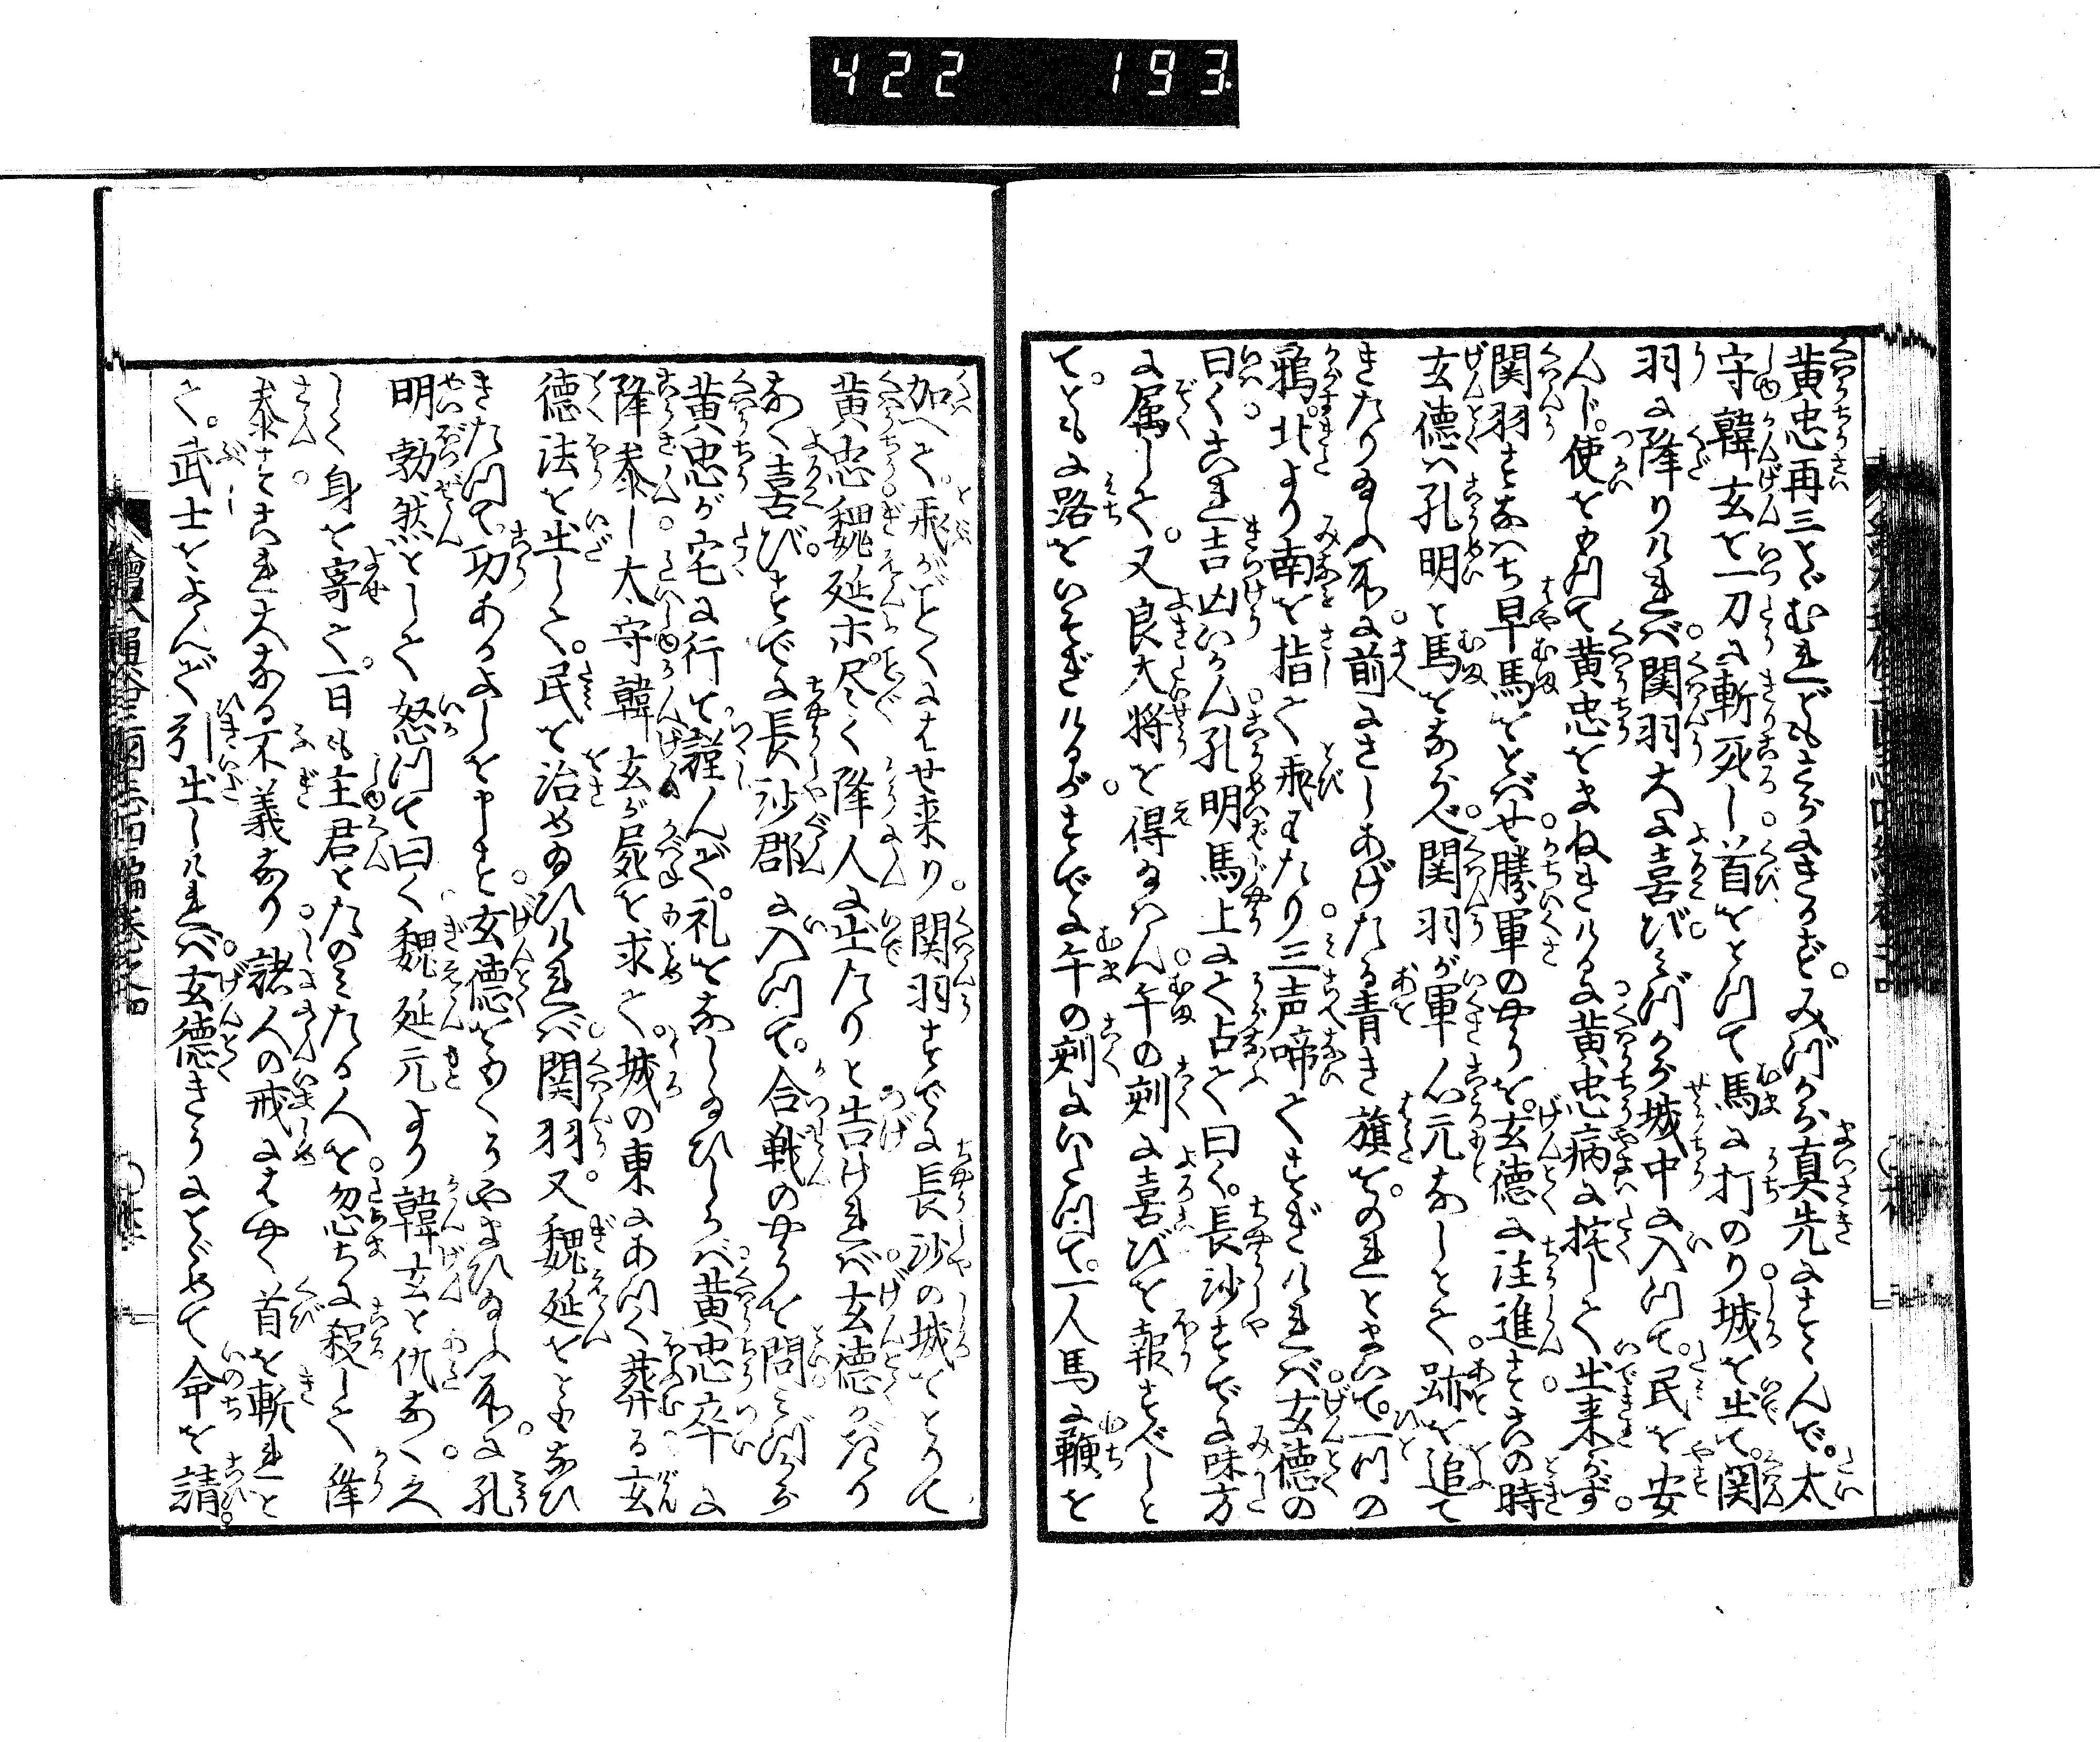 422 193
黄忠再三とゞむれどもさらにきかず。みづから真先にすゝんで。太
守韓玄を一刀に斬死し首をとつて馬に打のり城を出て。関
羽に降りければ関羽大に喜び。みづから城中に入つて。民を安
んじ。使をもつて黄忠をまねきけるに黄忠病に托して出来らず
関羽すなはち早馬をとばせ勝軍のやうを。玄徳に注進す此時
玄徳ハ孔明と馬をならべ関羽が軍心元なしとて跡を追て
きたり給ふ所に前にさしあげたる青き旗を。のれとまいて。一つの
鴉。北より南を指て飛わたり三声啼てすぎければ玄徳の
曰くこれ吉凶いかん孔明馬上にて占て曰く。長沙すでに味方
に属して。又良大将を得給はん午の刻に喜びを報ずべしと
て。ともに路をいそぎけるがすでに午の刻にいたつて。一人馬に鞭を
加へて。飛がごとくにはせ来り。関羽すでに長沙の城をとつて
黄忠魏延ホ尽く降人に出たりと告ければ玄徳かぎり
なく喜び。すでに長沙郡に入つて。合戦のやうを問みづから
黄忠が宅に行て謹んで。礼をなし給ひしかバ黄忠卒に
降参し太守韓玄が屍を求て。城の東にあつく葬る玄
徳法を出して。民を治め給ひければ関羽又魏延をともなひ
きたつて。功あるよしを申すと玄徳をもくうやまひ給ふ所に孔
明勃然として怒つて曰く魏延元より韓玄と仇なく之
しく身を寄て。一日も主君とたのみたる人を忽ちに殺して降
参すこれ大なる不義なり諸人の戒にはやく首を斬れと
て。武士をよんで引出しければ。玄徳きうにとゞめて命を請